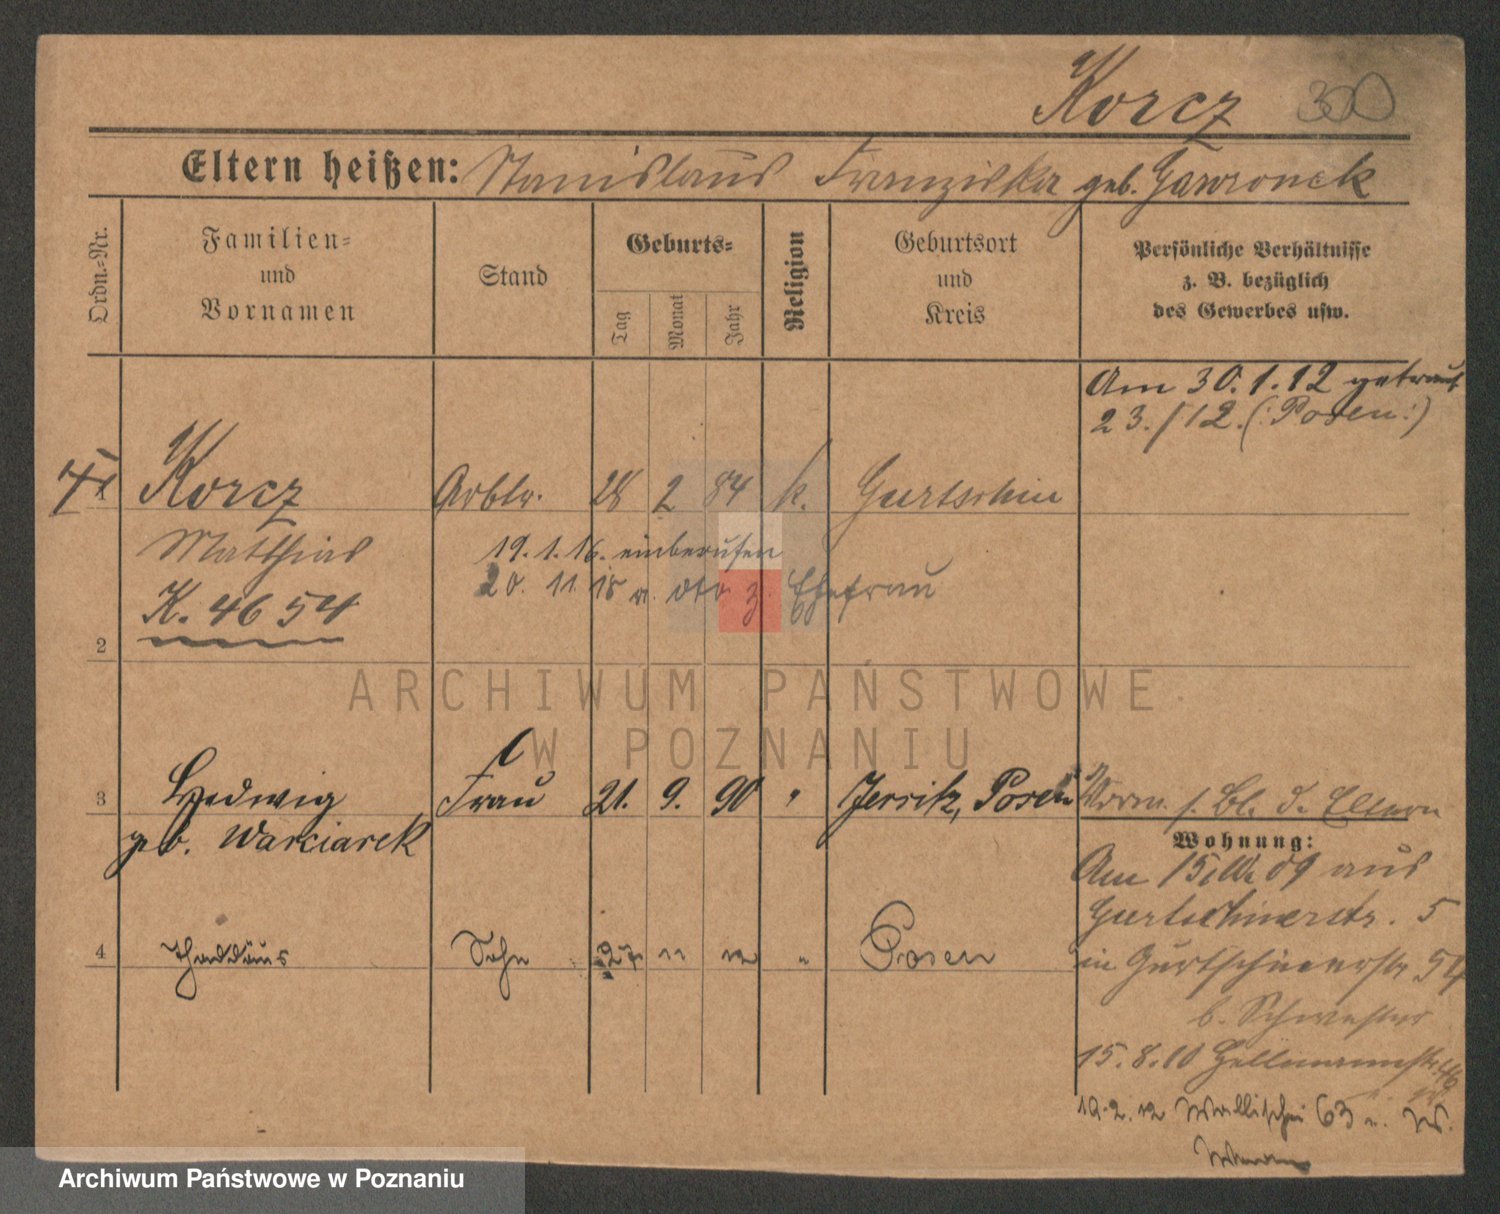 Korcz 300
Eltern heißen: Stanislaus Franziska geb. Gawronek
Ordn.-Nr.
Familien-
und
Vornamen
Stand
Geburts-
Tag
Monat
Jahr
Religion
Geburtsort
und
Kreis
Persönliche Verhältnisse
z. B. bezüglich
des Gewerbes usw.
Am 30.1.12 getraut
23./12. (: Posen :)
1 Korcz Arbtr. 28 2 84 k. Gurtschin
Matthias
19.1.16. einberufen
K. 4654
20. 11. 18 z. Ehefrau
2
ARCHIWUM PAŃSTWOWE
W POZNANIU
3 Hedwig Frau 21. 9. 90 " Jersitz, Posen
Vorm. s. Bl. d. Eltern
geb. Warciarek
Wohnung:
Am 15. 09 aus
Gurtschinerstr. 5
4 Thaddäus Sohn 27 11 12 " Posen
in Gurtschinerstr 54
b. Schwester
15.8.10 46
19.2.12 Wallischei 63
Archiwum Państwowe w Poznaniu